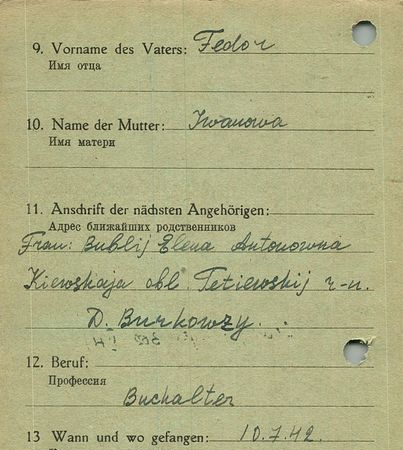 9. Vorname des Vaters: Fedor
Имя отца
10. Name der Mutter: Iwanowa
Имя матери
11. Anschrift der nächsten Angehörigen:
Адрес ближайших родственников
Frau: Bublij Elena Antonowna
Kiewskaja obl. Tetiewskij r-n.
D. Burkowzy.
12. Beruf:
Профессия
Buchalter
13 Wann und wo gefangen: 10.7.42.